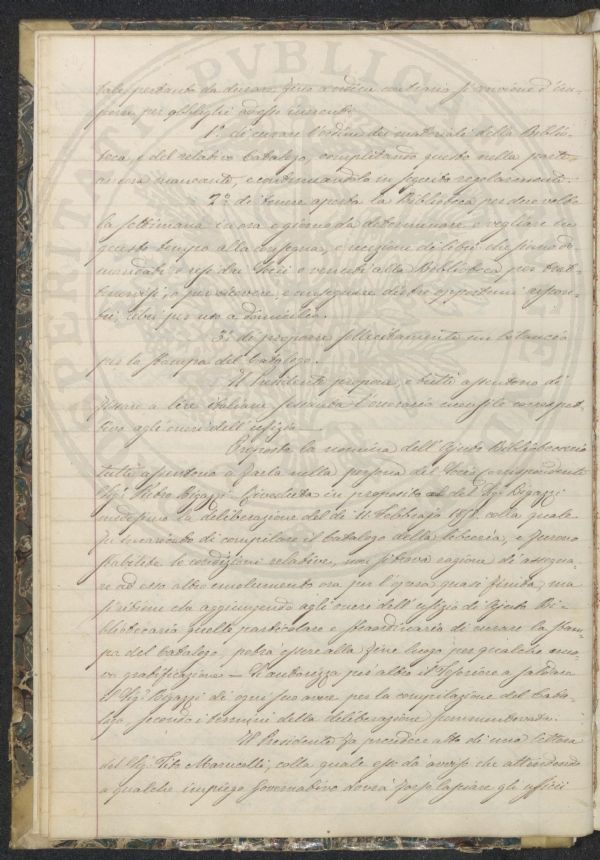 tale pertanto da durare fino a ordine contrario si conviene d'im-
porre per obblighi adesso inerenti
1° di curare l'ordine dei materiali della Biblio-
teca, e del relativo Catalogo, completando questo nella parte
ancora mancante, e continuandolo in seguito regolarmente.
2° di tenere aperta la Biblioteca per due volte
la settimana in ora e giorno da determinare, e vegliare in
questo tempo alla consegna, e recezione di libri che siano do-
mandati o resi dai Soci e venuti alla Biblioteca per trat-
tenervisi, o per ricevere, e consegnare dietro opportuni
libri per uso a domicilio.
3° di proporre sollecitamente un bilancio
per la stampa del Catalogo.
Il Presidente propone, e tutti assentono di
fissare a lire italiane sessanta l'onorario mensile correspet-
tivo agli oneri dell'ufizio —
Proposta la nomina dell'Ajuto Bibliotecario
tutti assentono a farla nella persona del Socio Corrispondente
Sig: Pietro Bigazzi. Riveduta in proposito del Sig. Bigazzi
medesimo la deliberazione del dì 11. Febbraio 1872. colla quale
fu incaricato di compilare il Catalogo della libreria, e furono
stabilite le condizioni relative, non si trova ragione di assegna-
re ad esso altro emolumento ora per l'opera quasi finita, ma
si ritiene che aggiungendo agli oneri dell'ufizio di Ajuto Bi-
bliotecario quello particolare e straordinario di curare la stam-
pa del Catalogo, potrà essere alla fine luogo per qualche nuo-
va gratificazione — Si autorizza per altro il Tesoriere a saldare
il Sig: Bigazzi di ogni suo avere per la compilazione del Cata-
logo, secondo i termini della deliberazione summentovata.
Il Presidente fa prendere atto di una lettera
del Sig: Tito Marucelli, colla quale esso dà avviso che attendendo
a qualche impiego Governativo dovrà forse lasciare gli ufficii